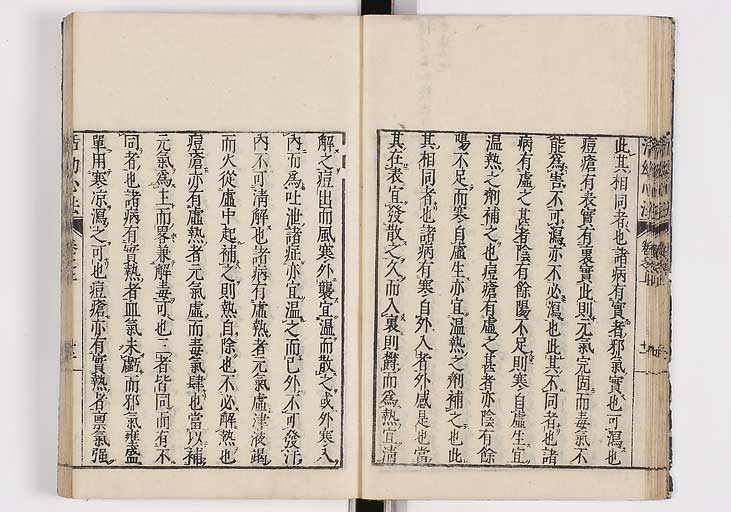 此其相同者也諸病有實者邪氣實也可瀉也
痘瘡有表實有裏實此則元氣完固而毒氣不
能爲害不可瀉亦不必瀉也此其不同者也諸
病有虛之甚者陰有餘陽不足則寒自虛生宜
温熱之劑補之也痘瘡有虛之甚者亦陰有餘
陽不足而寒自虛生亦宜温熱之劑補之也此
其相同者也諸病有寒自外入者外感是也當
其在表宜發散之久而入裏則欝而爲熱宜清
解之痘出而風寒外襲宜温而散之或外寒入
內而爲吐泄諸症亦宜温之而已外不可發汗
內不可清解也諸病有虛熱者元氣虛津液竭
而火從虛中起補之則熱自除也不必解熱也
痘瘡亦有虛熱者元氣虛而毒氣肆也當以補
元氣爲主而畧兼解毒可也三者皆同而有不
同者也諸病有實熱者血氣未虧而邪氣壅盛
單用寒凉瀉之可也痘瘡亦有實熱者禀氣强
活幼心法